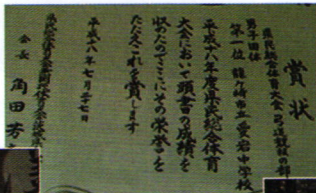 賞状
県民総合体育大会弓道競技の部
男子団体
第一位 龍ケ崎市立愛宕中学校
平成十八年度県民総合体育
大会において頭書の成績を
収めたのでここにその栄誉を
たたえこれを賞します
平成十八年七月二十七日
会長 角田芳